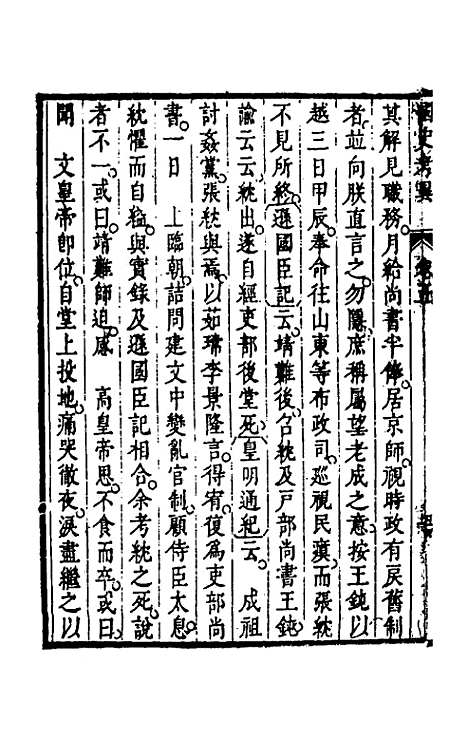 國史考異
其解見職務月給尚書半俸居京師視時政有戾舊制
者並向朕直言之勿隱庶稱屬望老成之意按王鈍以
越三日甲辰奉命往山東等布政司巡視民瘼而張紞
不見所終遜國臣記云靖難後召紞及戶部尚書王鈍
諭云云紞出遂自經吏部後堂死皇明通紀云 成祖
討姦黨張紞與焉以茹瑺李景隆言得宥復爲吏部尚
書一日 上臨朝詰問建文中變亂官制顧侍臣太息
紞懼而自縊與實錄及遜國臣記相合余考紞之死說
者不一或曰靖難師迫感 高皇帝恩不食而卒或曰
聞 文皇帝即位自堂上投地痛哭徹夜淚盡繼之以